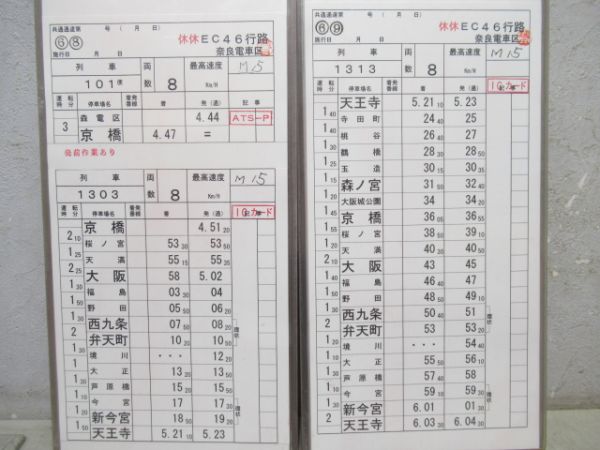 共通通達第 号 ( 月 日)
⑥⑧ 休休EC46行路
施行日 月 日 奈良電車区
列車 両数 最高速度 M15
101廻 8 Km/H
運転時分 停車場名 着発番線 着 発(通) 記事
3 森電区 4.44 ATS-P
京橋 4.47 =
発前作業あり
列車 両数 最高速度 M15
1303 8 Km/H
運転時分 停車場名 着発番線 着 発(通) 記事 ICカード
京橋 4.51 20
2 10 桜ノ宮 53 30 53 50
1 25 天満 55 15 55 35
2 25 大阪 58 5.02
1 福島 03 04
1 野田 05 06 20
1 30 西九条 07 50 08 20 環状
2 弁天町 10 20 10 50 環状
1 30 境川 ・・・ 12 20
1 大正 13 20 13 35
1 芦原橋 15 20 15 50
1 今宮 17 17 30
1 新今宮 18 50 19 20
1 50 天王寺 5.21 10 5.23
共通通達第 号 ( 月 日)
⑥⑨ 休休EC46行路
施行日 月 日 奈良電車区
列車 両数 最高速度 M15
1313 8 Km/H
運転時分 停車場名 着発番線 着 発(通) 記事 ICカード
天王寺 5.21 10 5.23
1 40 寺田町 24 40 25
桃谷 26 40 27
鶴橋 28 30 28 50
玉造 30 15 30
森ノ宮 31 50 32 20
大阪城公園 34 34 20
京橋 36 05 36 55
桜ノ宮 38 35 39
天満 40 20 40 50
大阪 43 45
福島 46 47
野田 48 50 49 10
西九条 50 40 51 環状
2 弁天町 53 53 20 環状
境川 ・・・ 54 40
大正 55 50 56 10
芦原橋 57 40 58
今宮 59 59 30
新今宮 6.01 01 30
2 天王寺 6.03 30 6.04 30